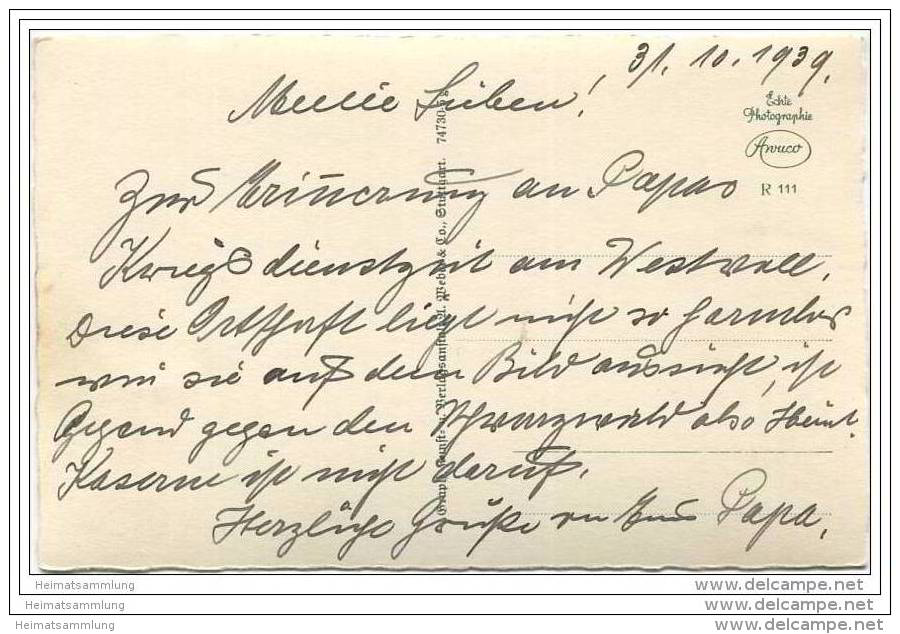 31. 10. 1939.
Meine Lieben!
Echte
Photographie
Amico
R 111
Zur Erinnerung an Papas
Kriegsdienstzeit am Westwall.
Diese Ortschaft liegt nicht so harmlos
wie sie auf dem Bild aussieht, ist
Gegend gegen den Schwarzwald also
Kaserne ist nicht darauf.
Herzliche Grüße von Eurem Papa.
Graph. Kunst- u. Verlagsanstalt A. Weber & Co., Stuttgart. 74730
Heimatsammlung
Heimatsammlung
Heimatsammlung
www.delcampe.net
www.delcampe.net
www.delcampe.net